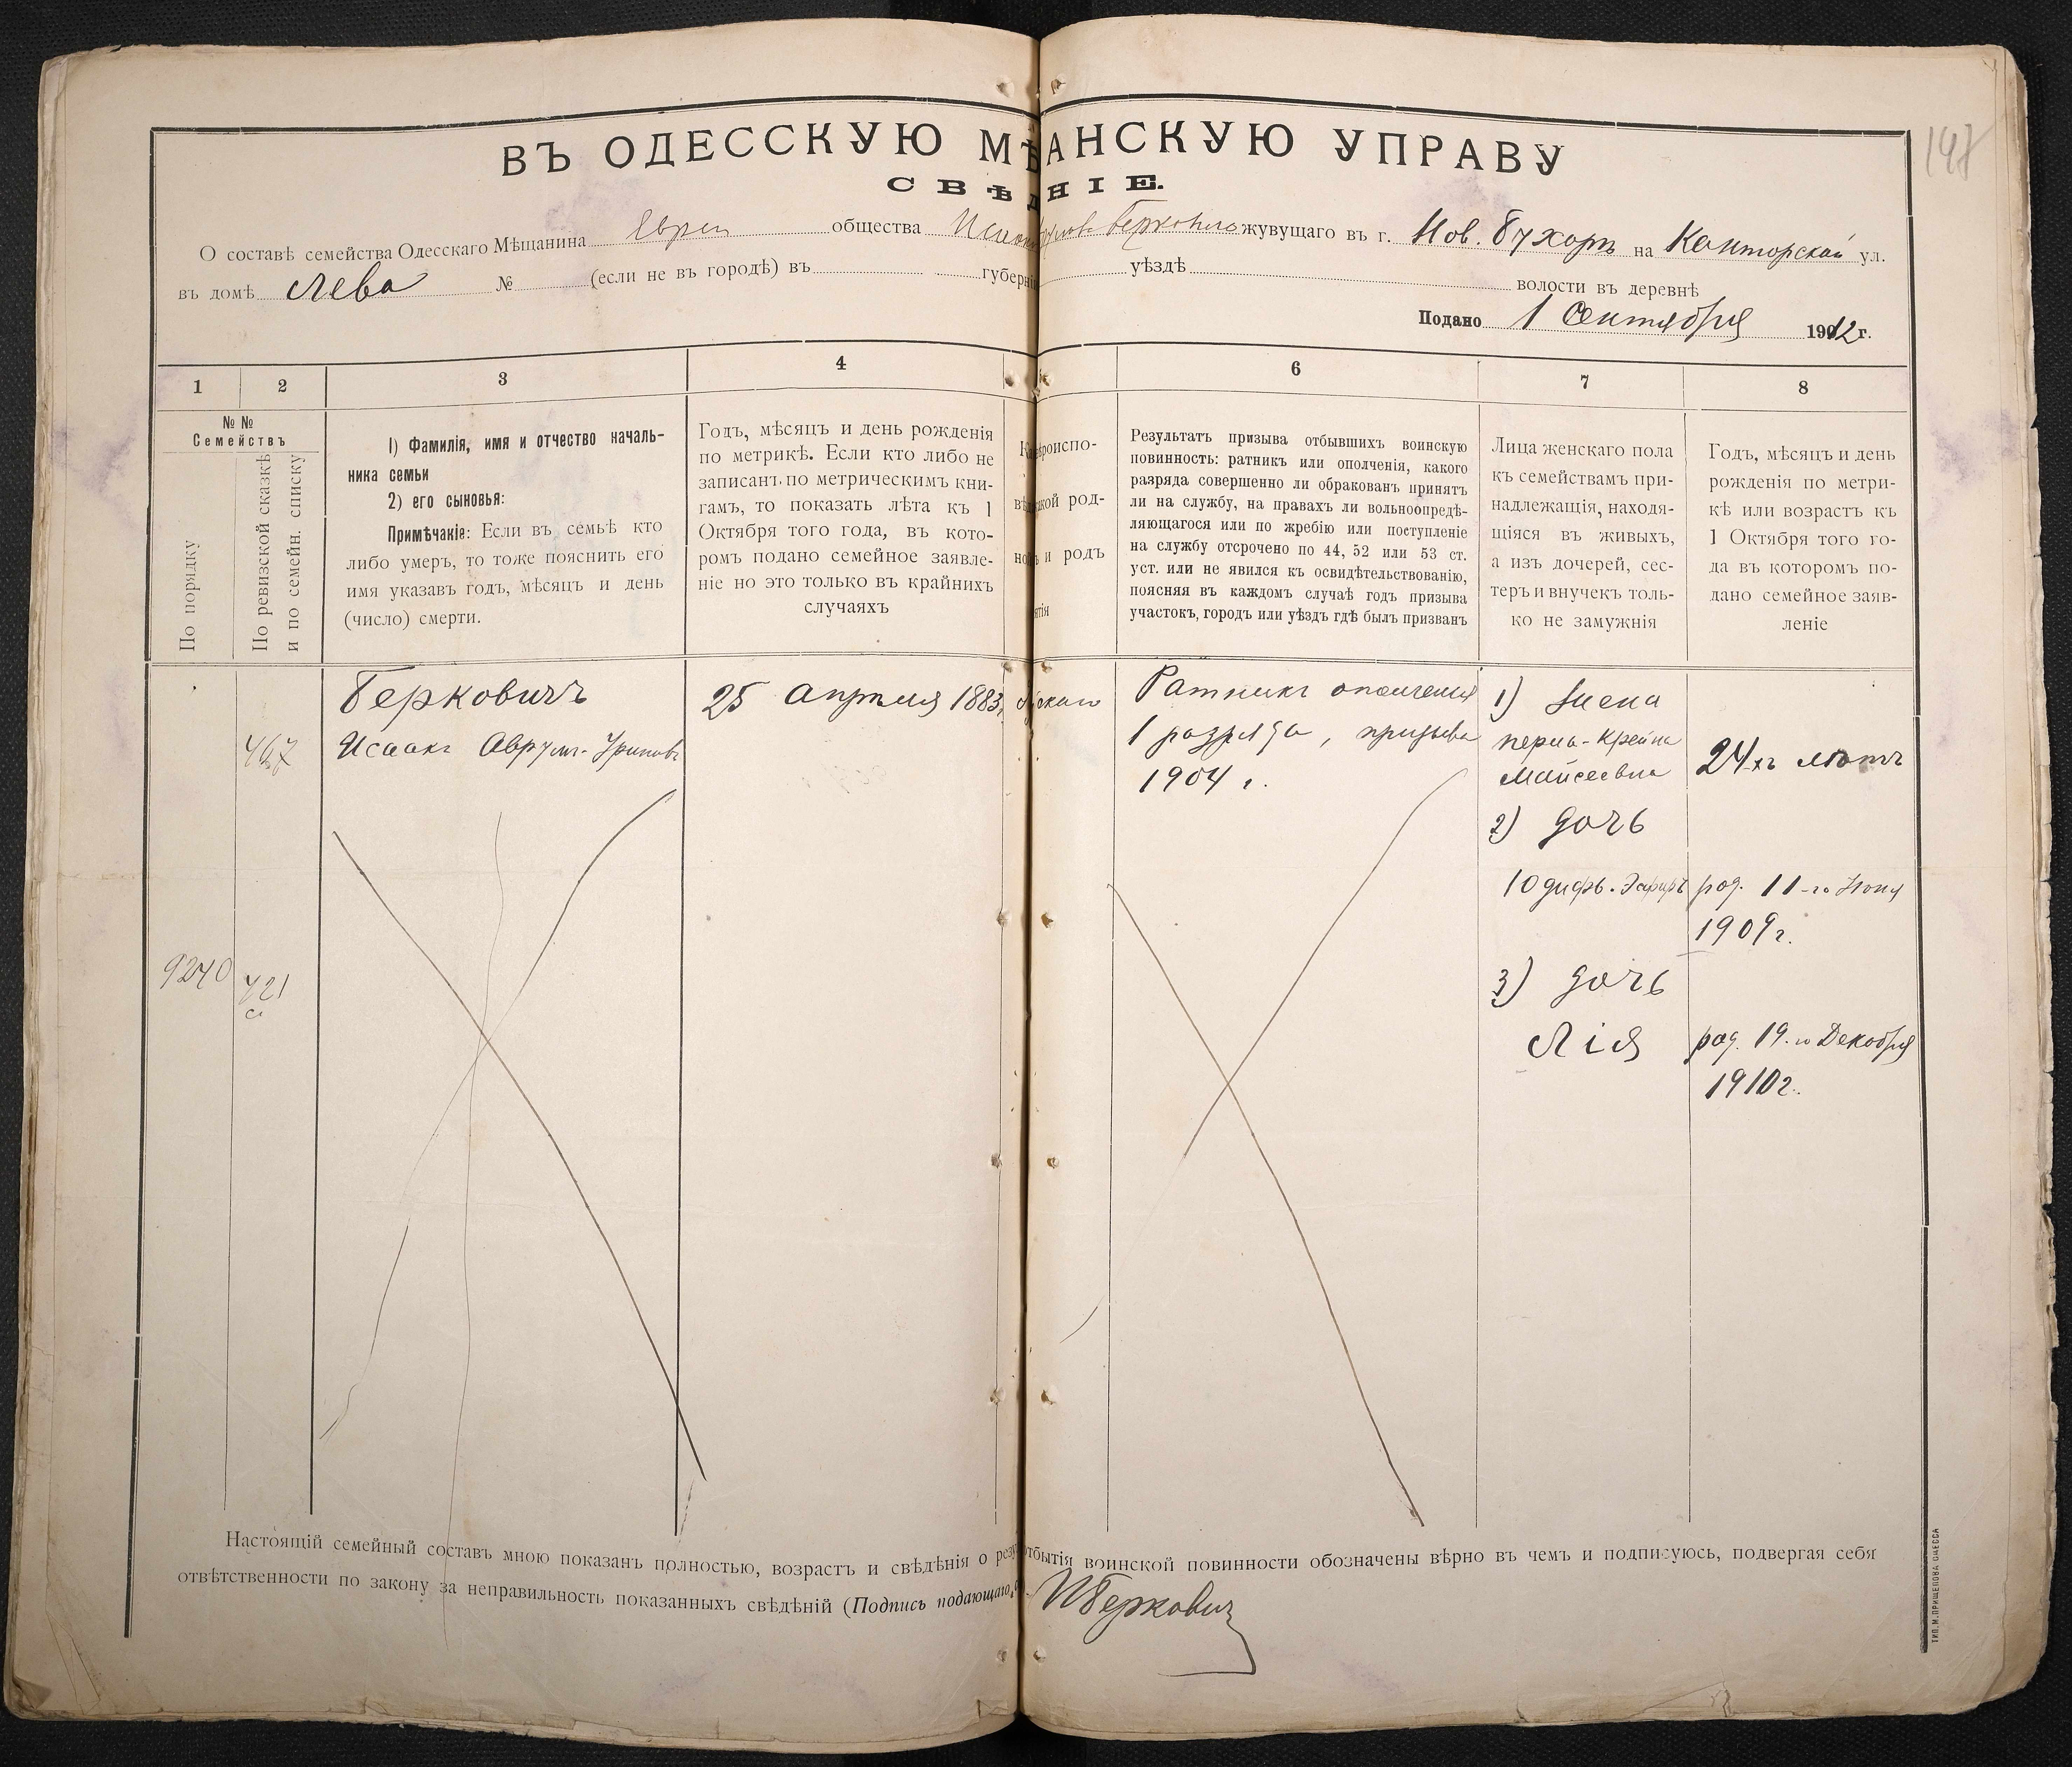 147
ВЪ ОДЕССКУЮ МѢ АНСКУЮ УПРАВУ
СВѢД НІЕ.
О составѣ семейства Одесскаго Мѣщанина Евреи общества Исаака Берковича жувущаго въ г. Нов. Бухарѣ на Конторской ул.
въ домѣ Лева № (если не въ городѣ) въ губерні уѣздѣ волости въ деревнѣ
Подано 1 Сентября 1912 г.
1 2 3 4 6 7 8
№ №
Семействъ
По порядку
По ревизской сказкѣ
и по семейн. списку
1) Фамилія, имя и отчество началь-
ника семьи
2) его сыновья:
Примѣчаніе: Если въ семьѣ кто
либо умеръ, то тоже пояснить его
имя указавъ годъ, мѣсяцъ и день
(число) смерти.
Годъ, мѣсяцъ и день рожденія
по метрикѣ. Если кто либо не
записанъ по метрическимъ кни-
гамъ, то показать лѣта къ 1
Октября того года, въ кото-
ромъ подано семейное заявле-
ніе но это только въ крайнихъ
случаяхъ
роиспо-
кой род-
и родъ
тія
Результатъ призыва отбывшихъ воинскую
повинность: ратникъ или ополченія, какого
разряда совершенно ли обракованъ принятъ
ли на службу, на правахъ ли вольноопредѣ-
ляющагося или по жребію или поступленіе
на службу отсрочено по 44, 52 или 53 ст.
уст. или не явился къ освидѣтельствованію,
поясняя въ каждомъ случаѣ годъ призыва
участокъ, городъ или уѣздъ гдѣ былъ призванъ
Лица женскаго пола
къ семействамъ при-
надлежащія, находя-
щіяся въ живыхъ,
а изъ дочерей, сес-
теръ и внучекъ толь-
ко не замужнія
Годъ, мѣсяцъ и день
рожденія по метри-
кѣ или возрастъ къ
1 Октября того го-
да въ которомъ по-
дано семейное заяв-
леніе
467
Берковичъ
Исаакъ Аврумъ-Уриновъ
25 апрѣля 1883
Ратникъ ополченія
1 разряда, призыва
1904 г.
1) Жена
Перля-Крейна
Мойсеевна
24-хъ лѣтъ
2) дочь
Юдифь-Эсфирь род. 11-го Іюня
1909 г.
9240
421
а
3) дочь
Лія род. 19-го Декабря
1910 г.
Настоящій семейный составъ мною показанъ полностью, возрастъ и свѣдѣнія о рез отбытія воинской повинности обозначены вѣрно въ чемъ и подписуюсь, подвергая себя
отвѣтственности по закону за неправильность показанныхъ свѣдѣній (Подпись подающаго ИБеркович
ТИП. М. ПРИЩЕПОВА ОДЕССА